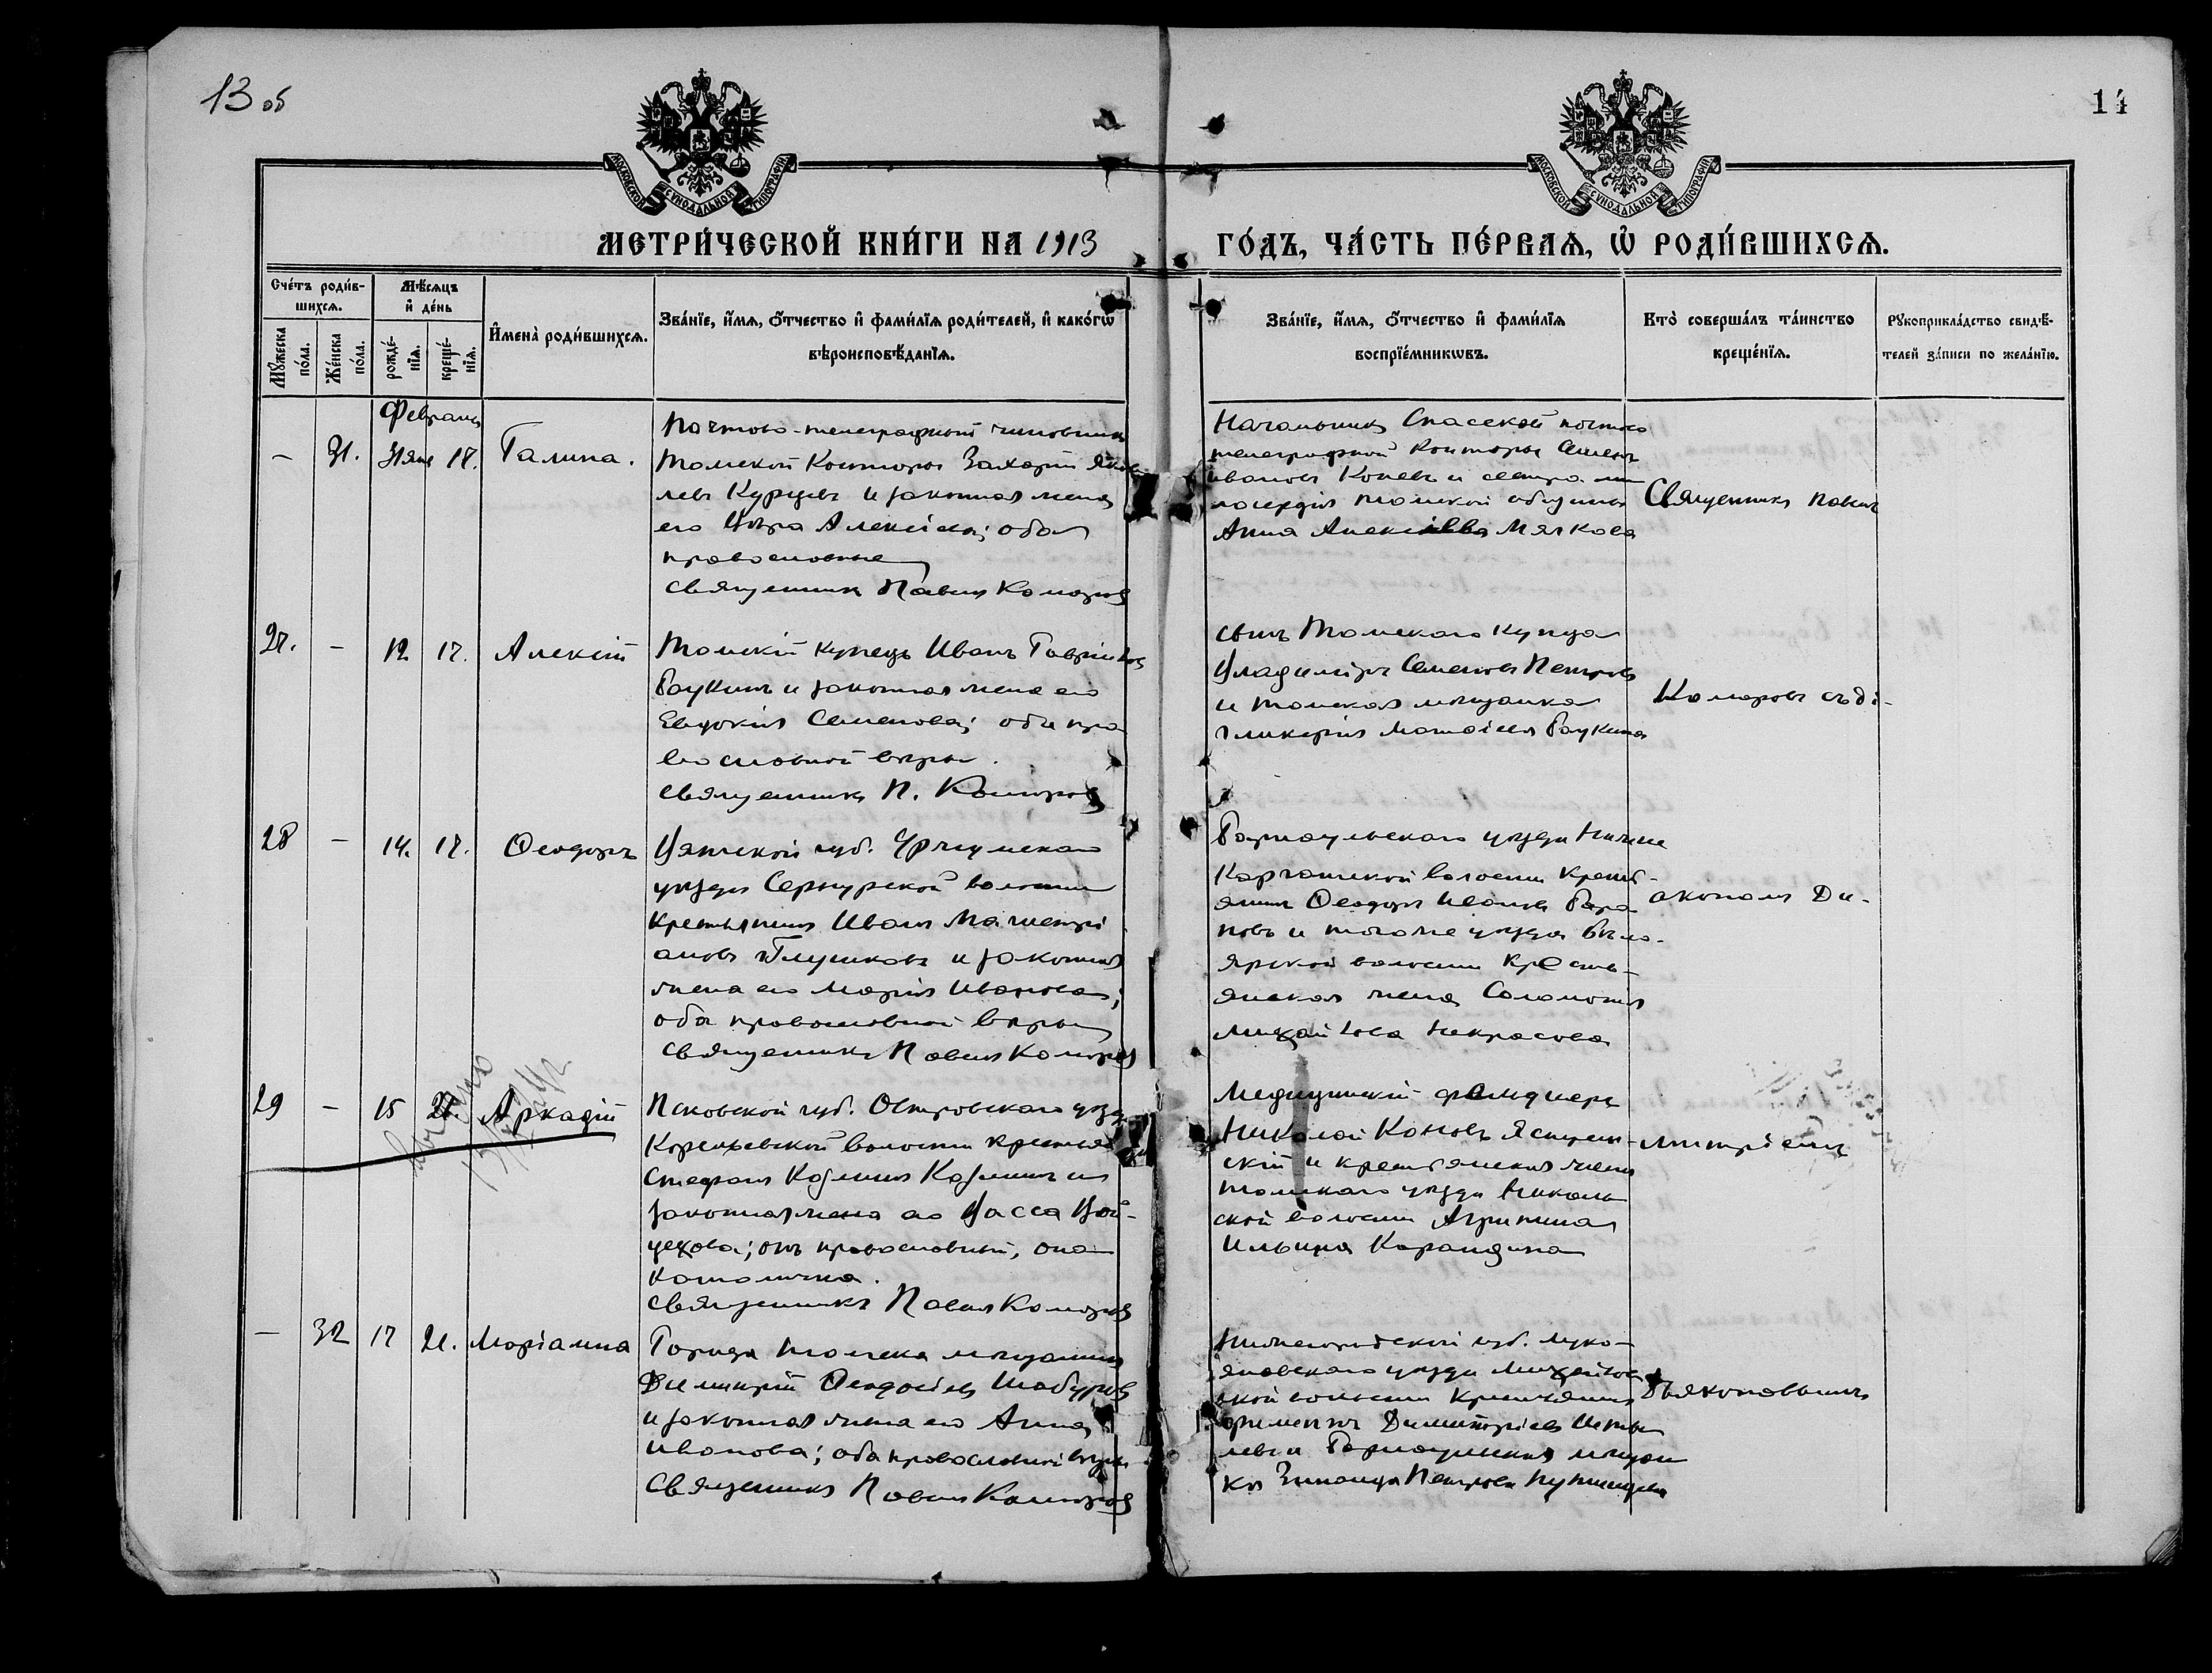 13 об
14
МОСКОВСКОЙ СѴНОДАЛЬНОЙ ТИПОГРАФІИ
МОСКОВСКОЙ СѴНОДАЛЬНОЙ ТИПОГРАФІИ
МЕТРИ́ЧЕСКОЙ КНИ́ГИ НА 1913
ГО́ДЪ, ЧА́СТЬ ПЕ́РВАѦ, Ѿ РОДИ́ВШИХСѦ.
Сче́тъ роди́в-
шихсѧ.
Мѣ́сѧцъ
и҆ де́нь
Мꙋ́жеска
по́ла.
Же́нска
по́ла.
рожде́-
нїѧ.
креще́-
нїѧ.
И҆мена̀ роди́вшихсѧ.
Зва́нїе, и҆́мѧ, ѻ҆́тчество и҆ фами́лїѧ роди́телей, и҆ како́гѡ
вѣроисповѣ́данїѧ.
Зва́нїе, и҆́мѧ, ѻ҆́тчество и҆ фами́лїѧ
воспрїе́мникѡвъ.
Кто̀ соверша́лъ та́инство
креще́нїѧ.
Рꙋкоприкла́дство свидѣ́-
телей за́писи по жела́нїю.
Февраль
– 31. 31 янв 17. Галина.
Почтово-телеграфный чиновникъ
Томской Конторы Захарій Яков
левъ Курцевъ и законная жена
его Вѣра Алексіева; оба
православные
Священникъ Павелъ Комаровъ
Начальникъ Спасской почтово
телеграфной Конторы Семенъ
Ивановъ Коневъ и сестра ми
лосердія Томской общины
Анна Алексіева Мялкова
Священникъ Павелъ
27. – 12 17. Алексій
Томскій купецъ Иванъ Гавріиловъ
и законная жена его
Евдокія Семенова; оба пра
вославной вѣры.
Священникъ П. Комаровъ
сынъ Томскаго купца
Владиміръ Семеновъ Петровъ
и томская мѣщанка
Гликерія
Комаровъ съ ді-
28 – 14. 17. Ѳеодоръ
Вятской губ. Уржумскаго
уѣзда Сернурской волости
крестьянинъ Иванъ
ановъ Глушковъ и законная
жена его Марія Иванова;
оба православной вѣры
Священникъ Павелъ Комаровъ
Барнаульскаго уѣзда Нижне
Каргатской волости кресть-
янинъ Ѳеодоръ Ивановъ Бара
новъ и того же уѣзда Бѣло-
ярской волости Кресть-
янская жена Соломонія
Михайлова Некрасова
акономъ Ди-
29 – 15 21. Аркадій
Псковской губ. Островскаго уѣзда
волости крестьян
Стефанъ Козминъ Козминъ и
законная жена его Васса Вой-
цехова; онъ православный, она
католичка.
Священникъ Павелъ Комаровъ
Медицинскій фельдшеръ
Николай
скій и крестьянская жена
Томскаго уѣзда Николь
ской волости Агрипина
Ильина Карандина
митріемъ
– 32 17 21. Маріанна
Города Томска мѣщанинъ
Димитрій Ѳеодосіевъ Шабуровъ
и законная жена его Анна
Иванова; оба православной вѣры
Священникъ Павелъ Комаровъ
Нижегородской губ. Луко-
яновскаго уѣзда Михайлов
ской волости Крестьянинъ
Димитріевъ
левъ и Барнаульская мѣщан
ка Зинаида Петрова
Дьяконовымъ